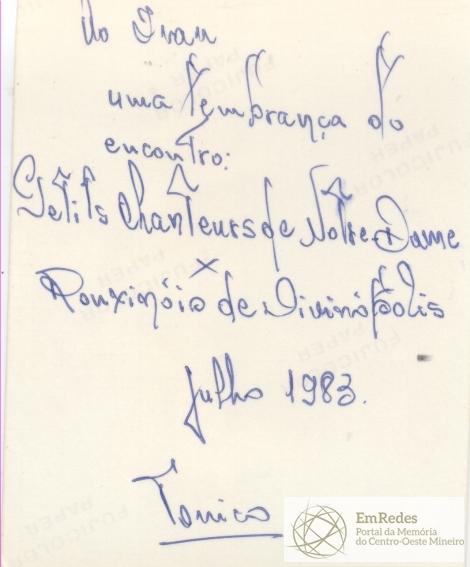 Ao Ivan
uma lembrança do
encontro:
Petits Chanteurs de Notre-Dame
X
Rouxinóis de Divinópolis
julho 1983.
Tonico
EmRedes
Portal da Memória
do Centro-Oeste Mineiro
FUJICOLOR
PAPER